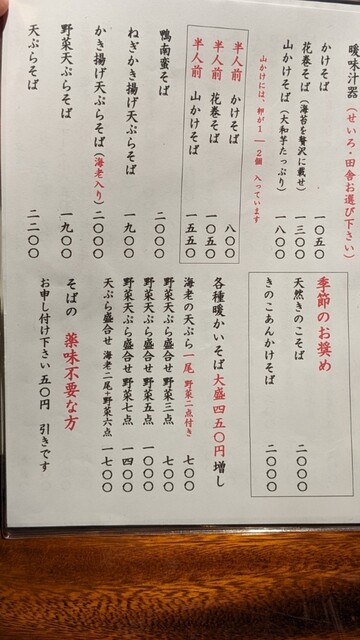 暖味汁器（せいろ・田舎お選び下さい）
かけそば 一〇五〇
花巻そば（海苔を贅沢に載せ） 一三〇〇
山かけそば（大和芋たっぷり） 一八〇〇
山かけには、卵が1―2個 入っています
半人前 かけそば 八〇〇
半人前 花巻そば 一〇五〇
半人前 山かけそば 一五五〇
鴨南蛮そば 二〇〇〇
ねぎかき揚げ天ぷらそば 一九〇〇
かき揚げ天ぷらそば（海老入り） 二〇〇〇
野菜天ぷらそば 一九〇〇
天ぷらそば 二二〇〇
季節のお奨め
天然きのこそば 二〇〇〇
きのこあんかけそば 二〇〇〇
各種暖かいそば 大盛四五〇円 増し
海老の天ぷら 一尾 野菜二点付き 七〇〇
野菜天ぷら盛合せ 野菜三点 七〇〇
野菜天ぷら盛合せ 野菜五点 一〇〇〇
野菜天ぷら盛合せ 野菜七点 一四〇〇
天ぷら盛合せ 海老二尾+野菜六点 一七〇〇
そばの 薬味不要な方
お申し付け下さい 五〇円 引きです